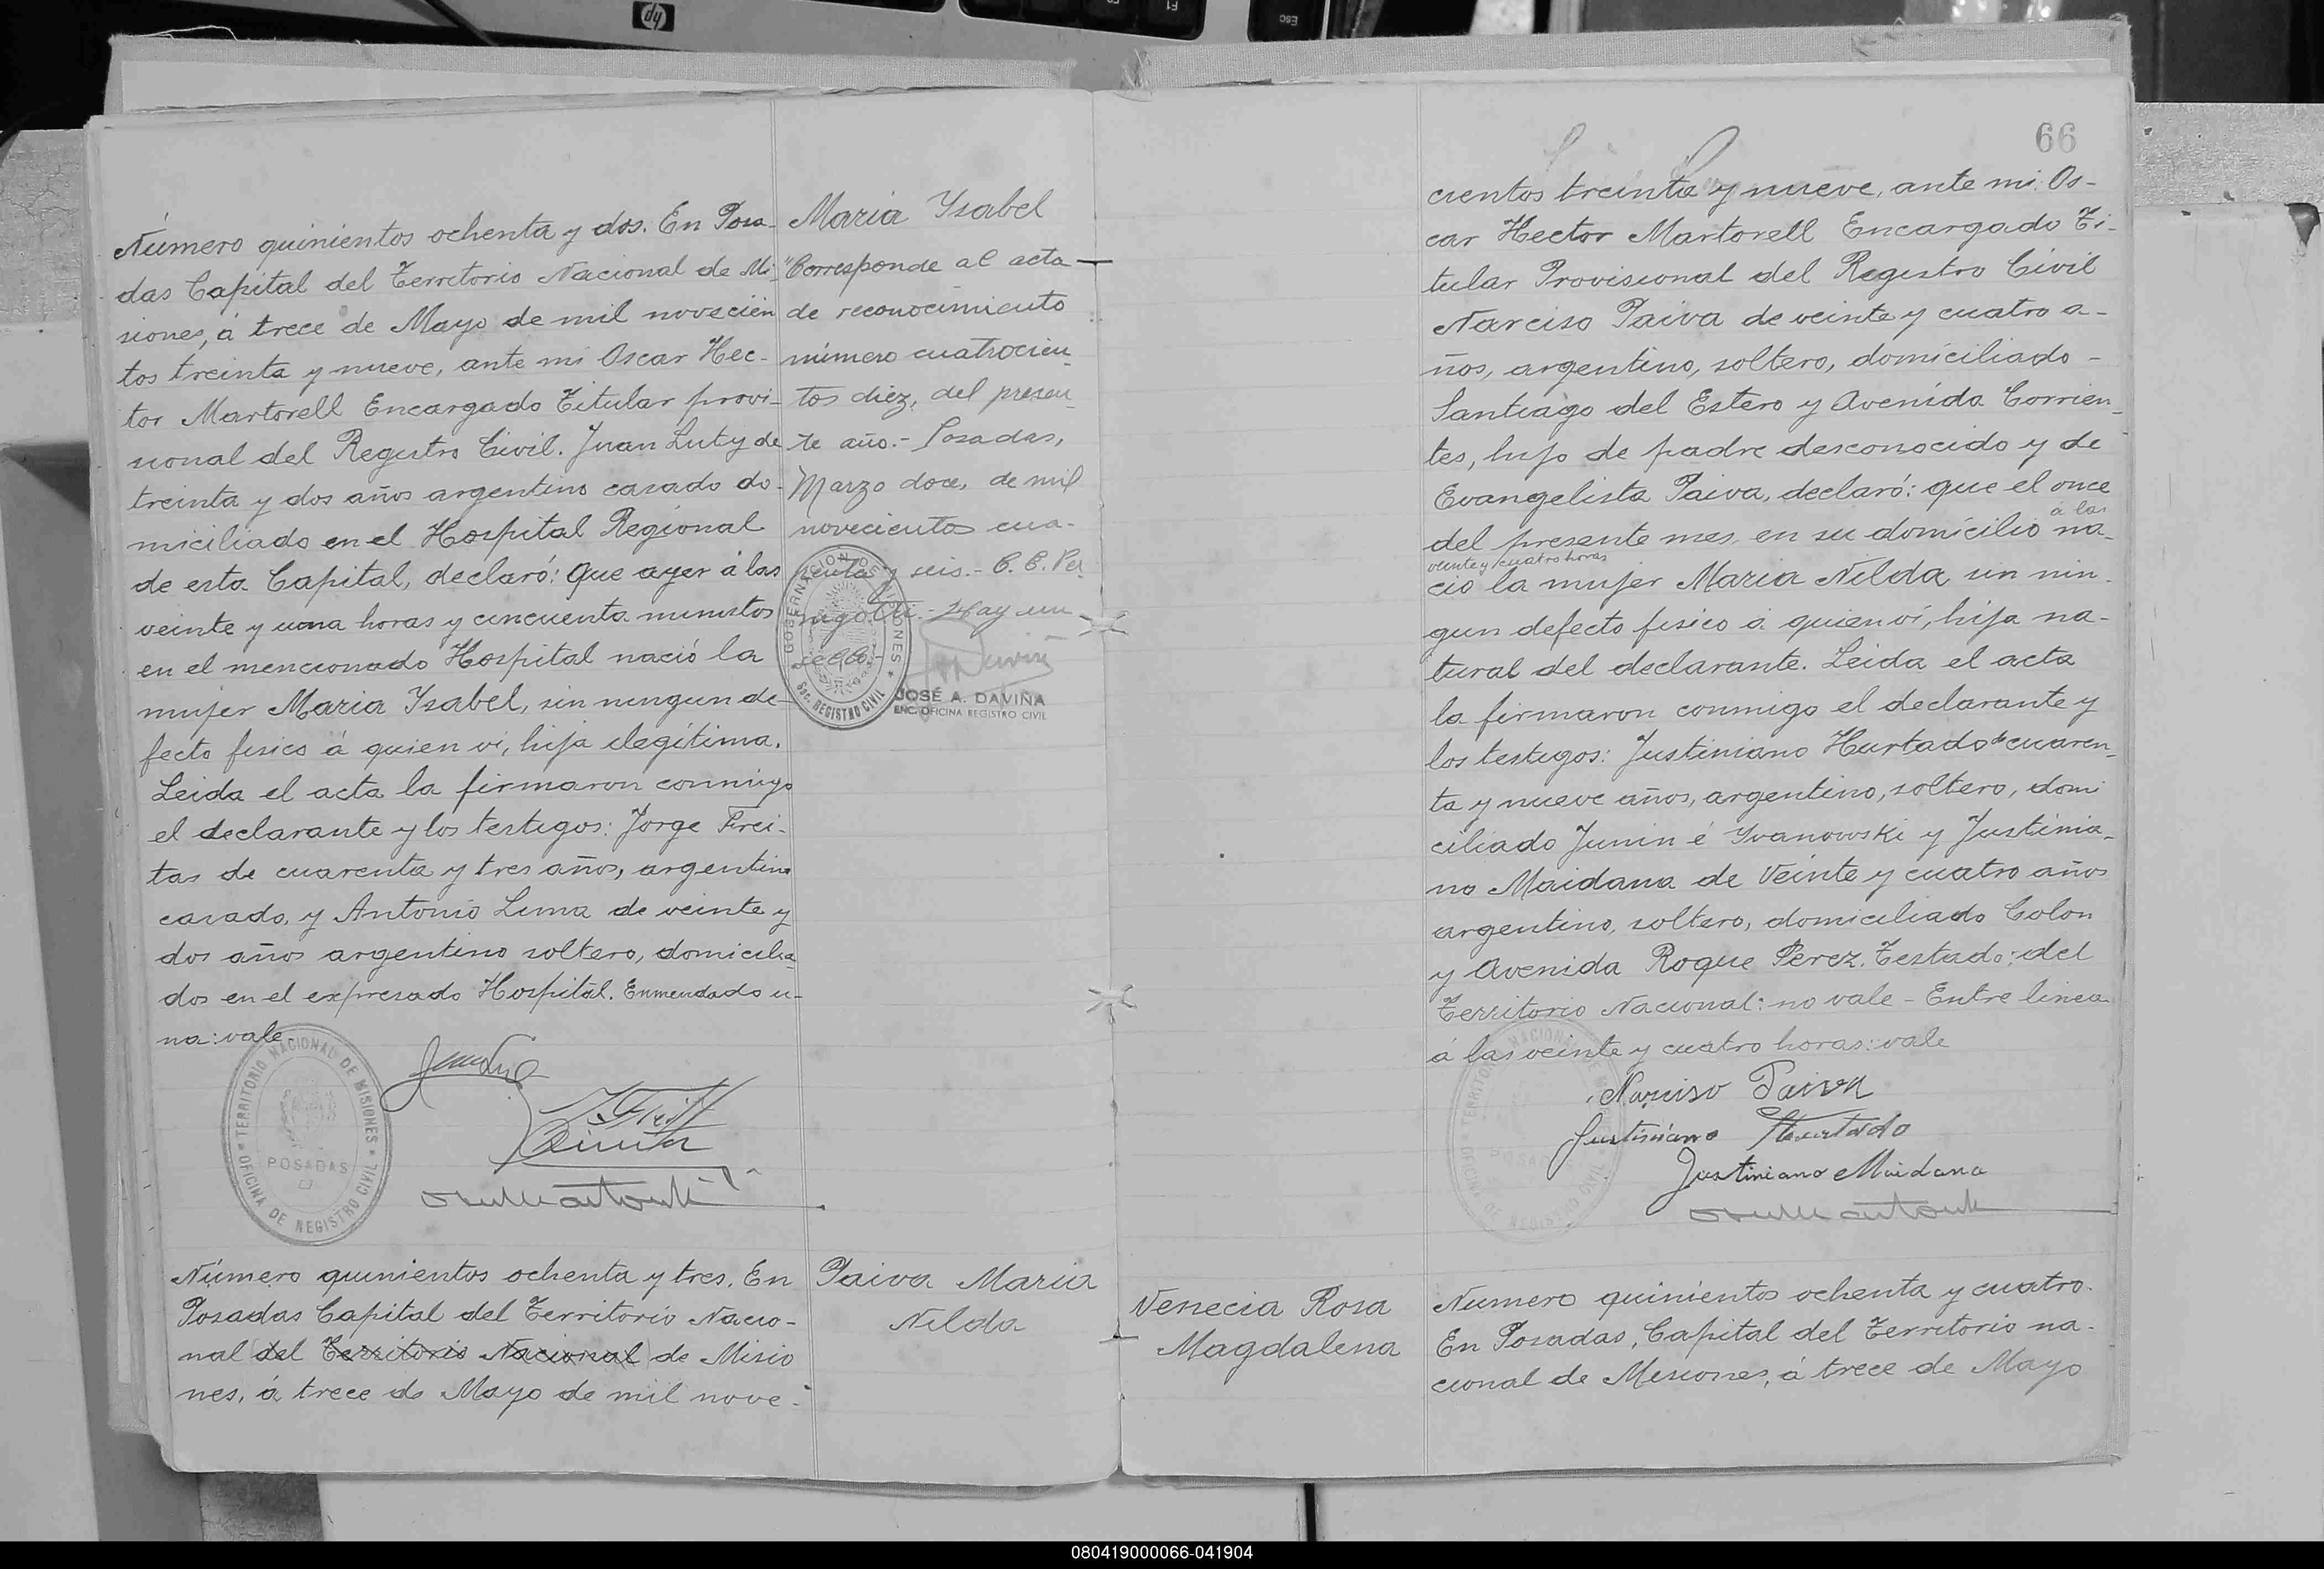 Número quinientos ochenta y dos. En Posa-
das Capital del Territorio Nacional de Mi-
siones, á trece de Mayo de mil novecien
tos treinta y nueve, ante mi Oscar Hec-
tor Martorell Encargado Titular provi-
sional del Registro Civil. Juan Luty de
treinta y dos años argentino casado do-
miciliado en el Hospital Regional
de esta Capital, declaró: Que ayer á las
veinte y una horas y cincuenta minutos
en el mencionado Hospital nació la
mujer Maria Ysabel, sin ningun de-
fecto fisico á quien vi, hija ilegítima.
Leida el acta la firmaron conmigo
el declarante y los testigos: Jorge Frei-
tas de cuarenta y tres años, argentino
casado, y Antonio Lima de veinte y
dos años argentino soltero, domicilia-
dos en el expresado Hospital. Enmendado u-
na: vale
TERRITORIO NACIONAL DE MISIONES
POSADAS
OFICINA DE REGISTRO CIVIL
Maria Ysabel
"Corresponde al acta
de reconocimiento
número cuatrocien-
tos diez, del presen-
te año.- Posadas,
Marzo doce, de mil
novecientos cua-
renta y seis.- C. C. Pe
Hay un
sello.-
GOBERNACION DE MISIONES
Sec. REGISTRO CIVIL
JOSÉ A. DAVIÑA
ENC. OFICINA REGISTRO CIVIL
Número quinientos ochenta y tres. En
Posadas Capital del Territorio Nacio-
nal (del Territorio Nacional) de Misio
nes, á trece de Mayo de mil nove-
Paiva Maria
Nilda
66
cientos treinta y nueve, ante mi Os-
car Hector Martorell Encargado Ti-
tular Provisional del Registro Civil
Narciso Paiva de veinte y cuatro a-
ños, argentino, soltero, domiciliado -
Santiago del Estero y Avenida Corrien-
tes, hijo de padre desconocido y de
Evangelista Paiva, declaró: que el once
á las
del presente mes, en su domicilio na-
veinte y cuatro horas
ció la mujer Maria Nilda sin nin-
gun defecto fisico á quien ví, hija na-
tural del declarante. Leida el acta
la firmaron conmigo el declarante y
los testigos: Justiniano Hurtado de cuaren-
ta y nueve años, argentino, soltero, domi
ciliado Junin é Yvanowski y Justinia-
no Maidana de Veinte y cuatro años
argentino, soltero, domiciliado Colon
y Avenida Roque Perez. Testado: del
Territorio Nacional: no vale - Entre linea
á las veinte y cuatro horas: vale
Narciso Paiva
Justiniano Hurtado
Justiniano Maidana
Venecia Rosa
Magdalena
Numero quinientos ochenta y cuatro.
En Posadas, Capital del Territorio na-
cional de Misiones, á trece de Mayo
hp
Esc
F1
080419000066-041904